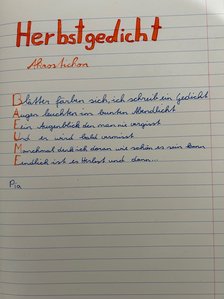 Herbstgedicht
Akrostichon
Blätter färben sich, ich schreib ein Gedicht
Augen leuchten im bunten Abendlicht
Ein Augenblick den man nie vergisst
Und er wird bald vermisst
Manchmal denk ich daran wie schön es sein kann
Endlich ist es Herbst und dann...
Pia